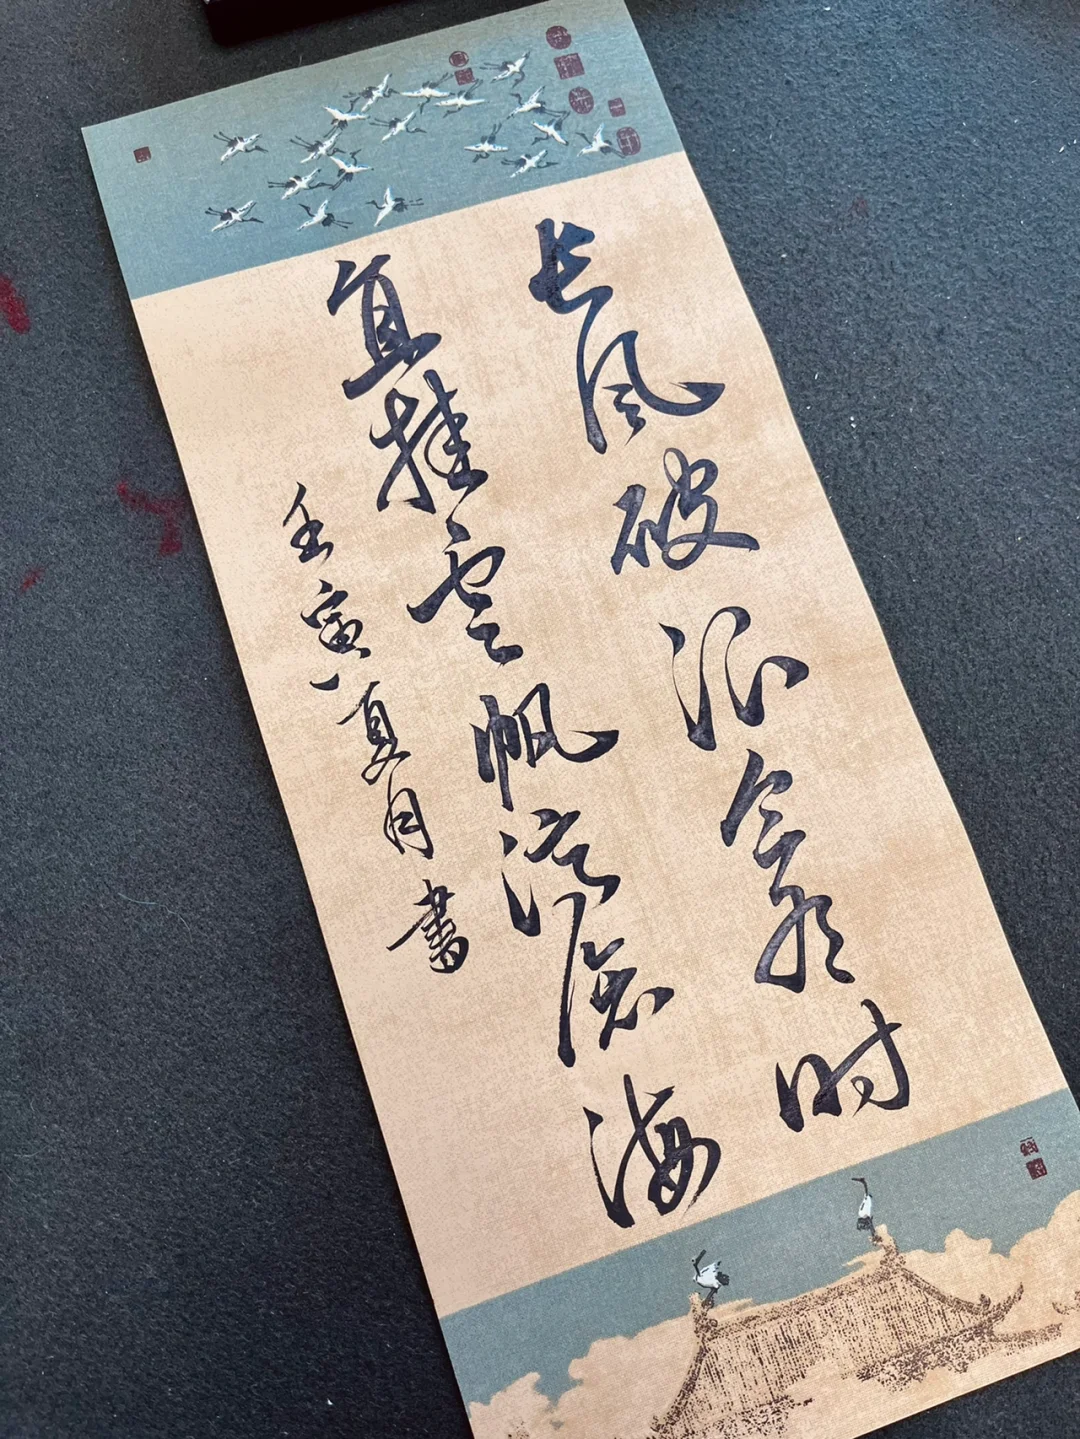 长风破浪会有时
直挂云帆济沧海
壬寅夏月书